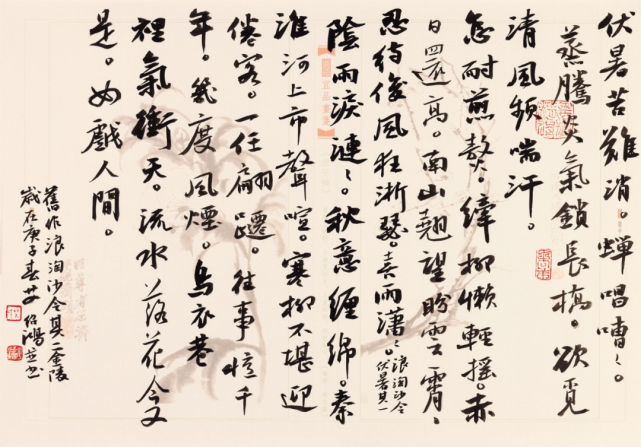 伏暑苦難消。蟬唱嘈〻。
蒸騰炎氣鎖長橋。欲覓
清風頻喘汗。
怎耐煎熬。柳懶輕搖。赤
日還高。南山翹望盼雲霄、
忍待俊風狂淅瑟。喜雨瀟〻。
浪淘沙令
伏暑其一
陰雨淚漣〻。秋意纏綿。秦
淮河上市聲喧。寒柳不堪迎
倦客。一任翩躚。往事憶千
年。幾度風煙。烏衣巷
裡氣衝天。流水落花今又
是。如戲人間。
舊作浪淘沙令其二金陵
歲在庚子春艾紹鴻並書